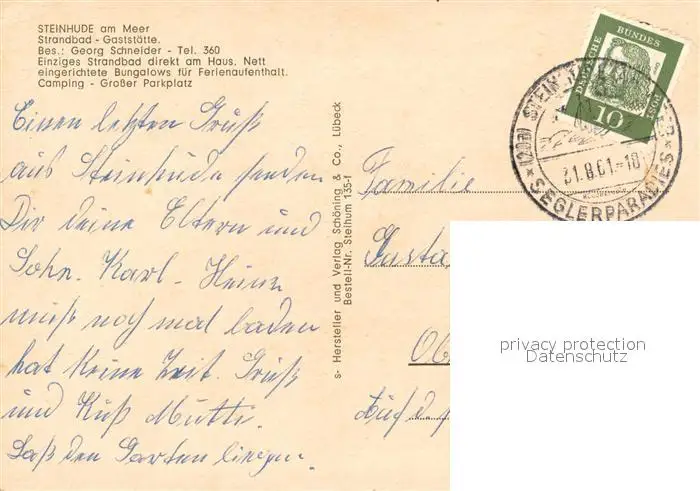 STEINHUDE am Meer
Strandbad - Gaststätte.
Bes.: Georg Schneider - Tel. 360
Einziges Strandbad direkt am Haus. Nett
eingerichtete Bungalows für Ferienaufenthalt.
Camping - Großer Parkplatz
Einen letzten Gruß
aus Steinhude senden
Dir deine Eltern und
Sohn. Karl-Heinz
muß noch mal baden
hat keine Zeit. Gruß
und Kuß Mutti.
Laß den Garten liegen.
s- Hersteller und Verlag Schöning & Co., Lübeck
Bestell-Nr. Steihum 135-f
DEUTSCHE BUNDESPOST
10
(20a) STEINHUDE
31.8.61.-18
SEGLERPARADIES
Familie
Gusta
Ob
Auf d
privacy protection
Datenschutz